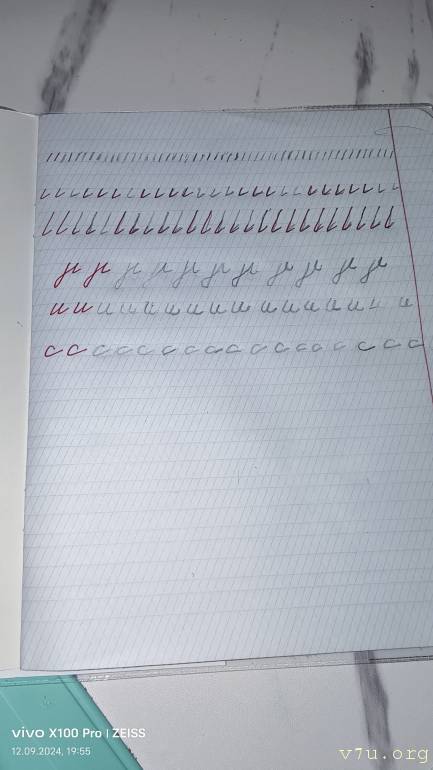 И И И И И И И И И И И
и и и и и и и и и и и и и и и и
с с с с с с с с с с с с с с с с с
vivo X100 Pro | ZEISS
12.09.2024, 19:55
v7u.org